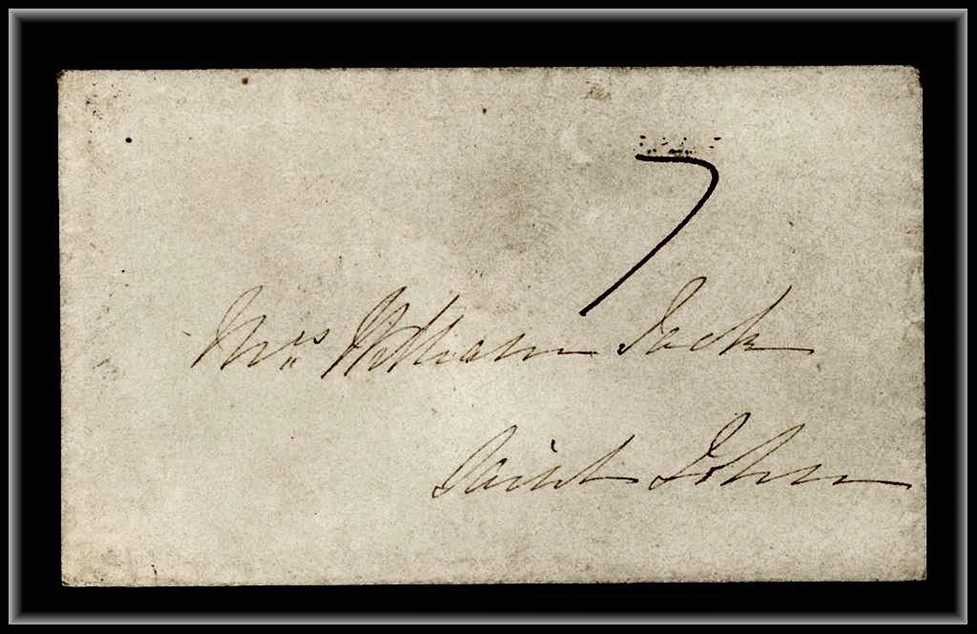 7
Mrs William Jack
Saint John